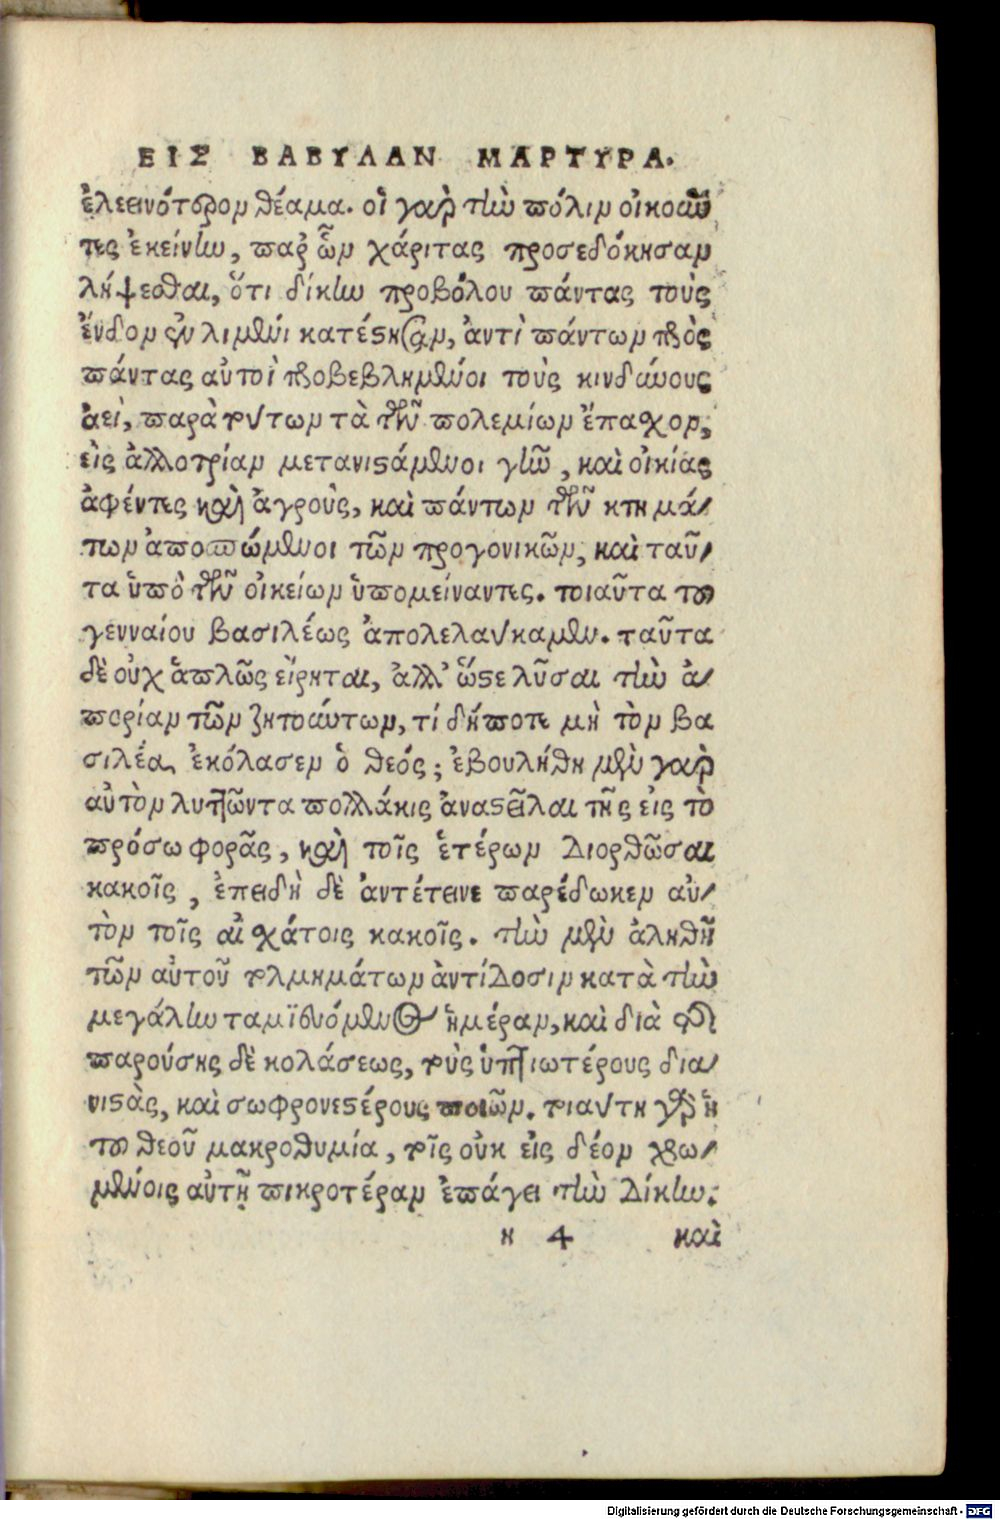 ΕΙΣ ΒΑΒΥΛΑΝ ΜΑΡΤΥΡΑ.
ἐλεεινότερον θέαμα. οἱ γὰρ τὴν πόλιν οἰκοῦν
τες ἐκείνην, παρ' ὧν χάριτας προσεδόκησαν
λήψεσθαι, ὅτι δίκην προβόλου πάντας τοὺς
ἔνδον ἐν λιμένι κατέστησαν, ἀντὶ πάντων πρὸς
πάντας αὐτοὶ προβεβλημένοι τοὺς κινδύνους
ἀεὶ, παρὰ τούτων τὰ τῶν πολεμίων ἔπασχον,
εἰς ἀλλοτρίαν μετανιστάμενοι γῆν, καὶ οἰκίας
ἀφέντες καὶ ἀγροὺς, καὶ πάντων τῶν κτημά-
των ἀποσπώμενοι τῶν προγονικῶν, καὶ ταῦ-
τα ὑπὸ τῶν οἰκείων ὑπομείναντες. τοιαῦτα τοῦ
γενναίου βασιλέως ἀπολελαύκαμεν. ταῦτα
δὲ οὐχ ἁπλῶς εἴρηται, ἀλλ' ὥστε λῦσαι τὴν ἀ-
πορίαν τῶν ζητούντων, τί δήποτε μὴ τὸν βα
σιλέα ἐκόλασεν ὁ θεός; ἐβουλήθη μὲν γὰρ
αὐτὸν λυττῶντα πολλάκις ἀναστεῖλαι τῆς εἰς τὸ
πρόσω φορᾶς, καὶ τοῖς ἑτέρων διορθῶσαι
κακοῖς, ἐπειδὴ δὲ ἀντέτεινε παρέδωκεν αὐ-
τὸν τοῖς αἰσχάτοις κακοῖς. τὴν μὲν ἀληθῆ
τῶν αὐτοῦ τολμημάτων ἀντίδοσιν κατὰ τὴν
μεγάλην ταμϊευόμενος ἡμέραν, καὶ διὰ τῆς
παρούσης δὲ κολάσεως, τοὺς ὑπτιωτέρους δια-
νιστὰς, καὶ σωφρονεστέρους ποιῶν. τοιαύτη γὰρ ἡ
τοῦ θεοῦ μακροθυμία, τοῖς οὐκ εἰς δέον χρω-
μένοις αὐτῇ πικροτέραν ἐπάγει τὴν δίκην.
κ 4 καὶ
Digitalisierung gefördert durch die Deutsche Forschungsgemeinschaft - DFG